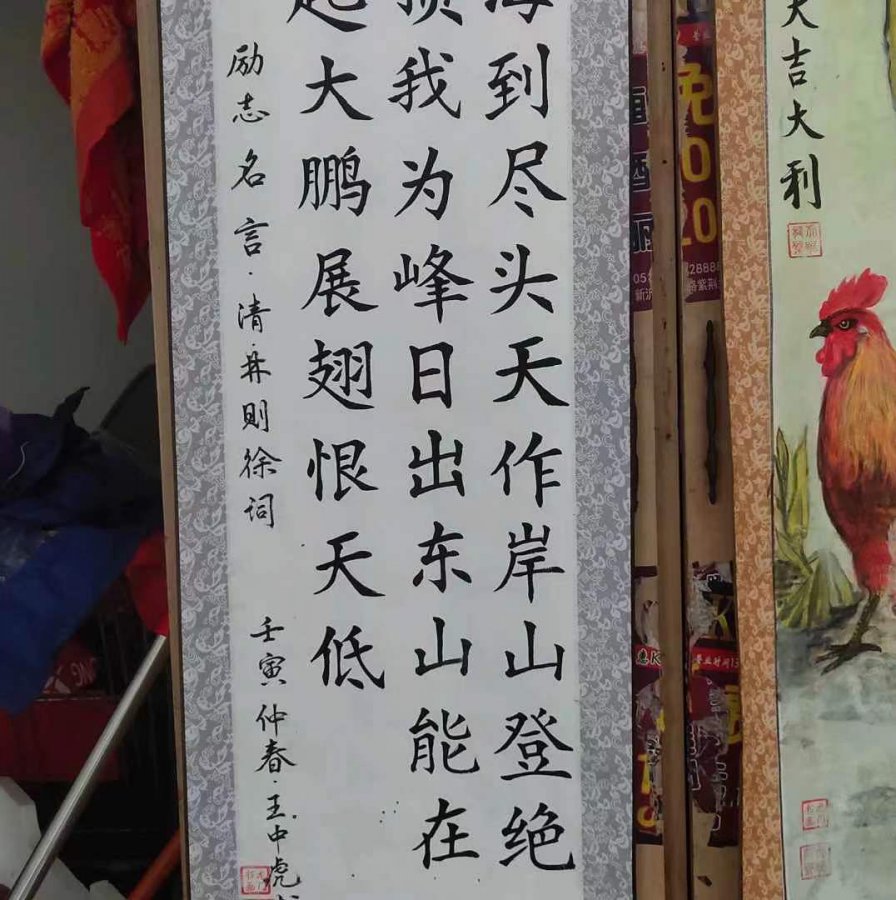 大吉大利
海到尽头天作岸山登绝
顶我为峰日出东山能在
起大鹏展翅恨天低
励志名言·清·林则徐词
壬寅仲春·王中虎
免
28888
新沂
营业时间13